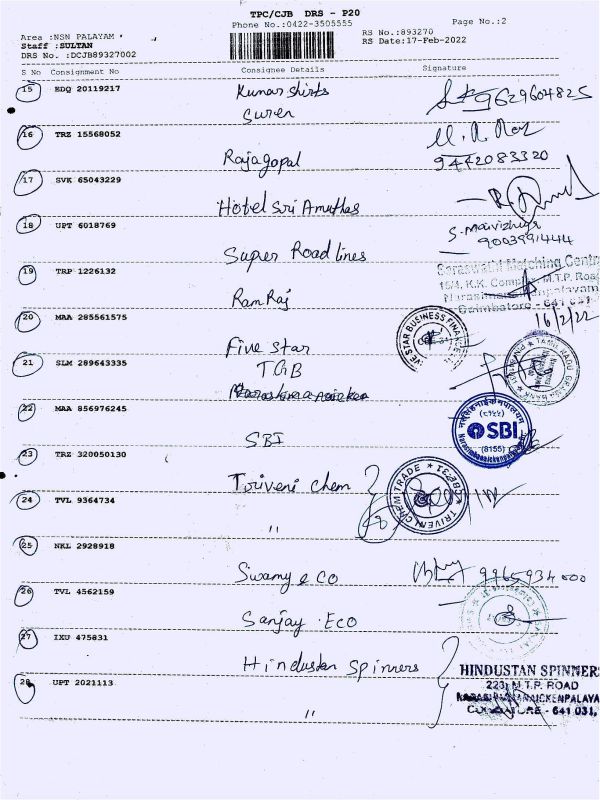 TPC/CJB DRS - P20
Phone No.:0422-3505555
Page No.:2
Area :NSN PALAYAM
RS No.:893270
Staff :SULTAN
RS Date:17-Feb-2022
DRS No. :DCJB89327002
S No Consignment No Consignee Details Signature
15 EDQ 20119217 Kumar shirts 9629604825
Suren
16 TRZ 15568052 Rajagopal
9442083320
17 SVK 65043229 Hotel Sri Amuthas
18 UPT 6018769 Super Road lines
9003991444
19 TRP 1226132 Ram Raj
Saraswathi Matching Centre
15/4, K.K. Complex, M.T.P. Road
Coimbatore - 641 031
16/2/22
20 MAA 285561575 Five Star
FIVE STAR BUSINESS FINANCE
21 SLM 289643335 TGB
TAMIL NADU GRAMA BANK
22 MAA 856976245 SBI
SBI
(8155)
23 TRZ 320050130 Triveni Chem
TRIVENI CHEM TRADE
24 TVL 9364734 "
25 NKL 2928918 Swamy & Co 9965934000
26 TVL 4562159 Sanjay . Eco
27 IXU 475831 Hindustan Spinners
HINDUSTAN SPINNERS
223, M.T.P. ROAD
28 UPT 2021113 "
COIMBATORE - 641 031,